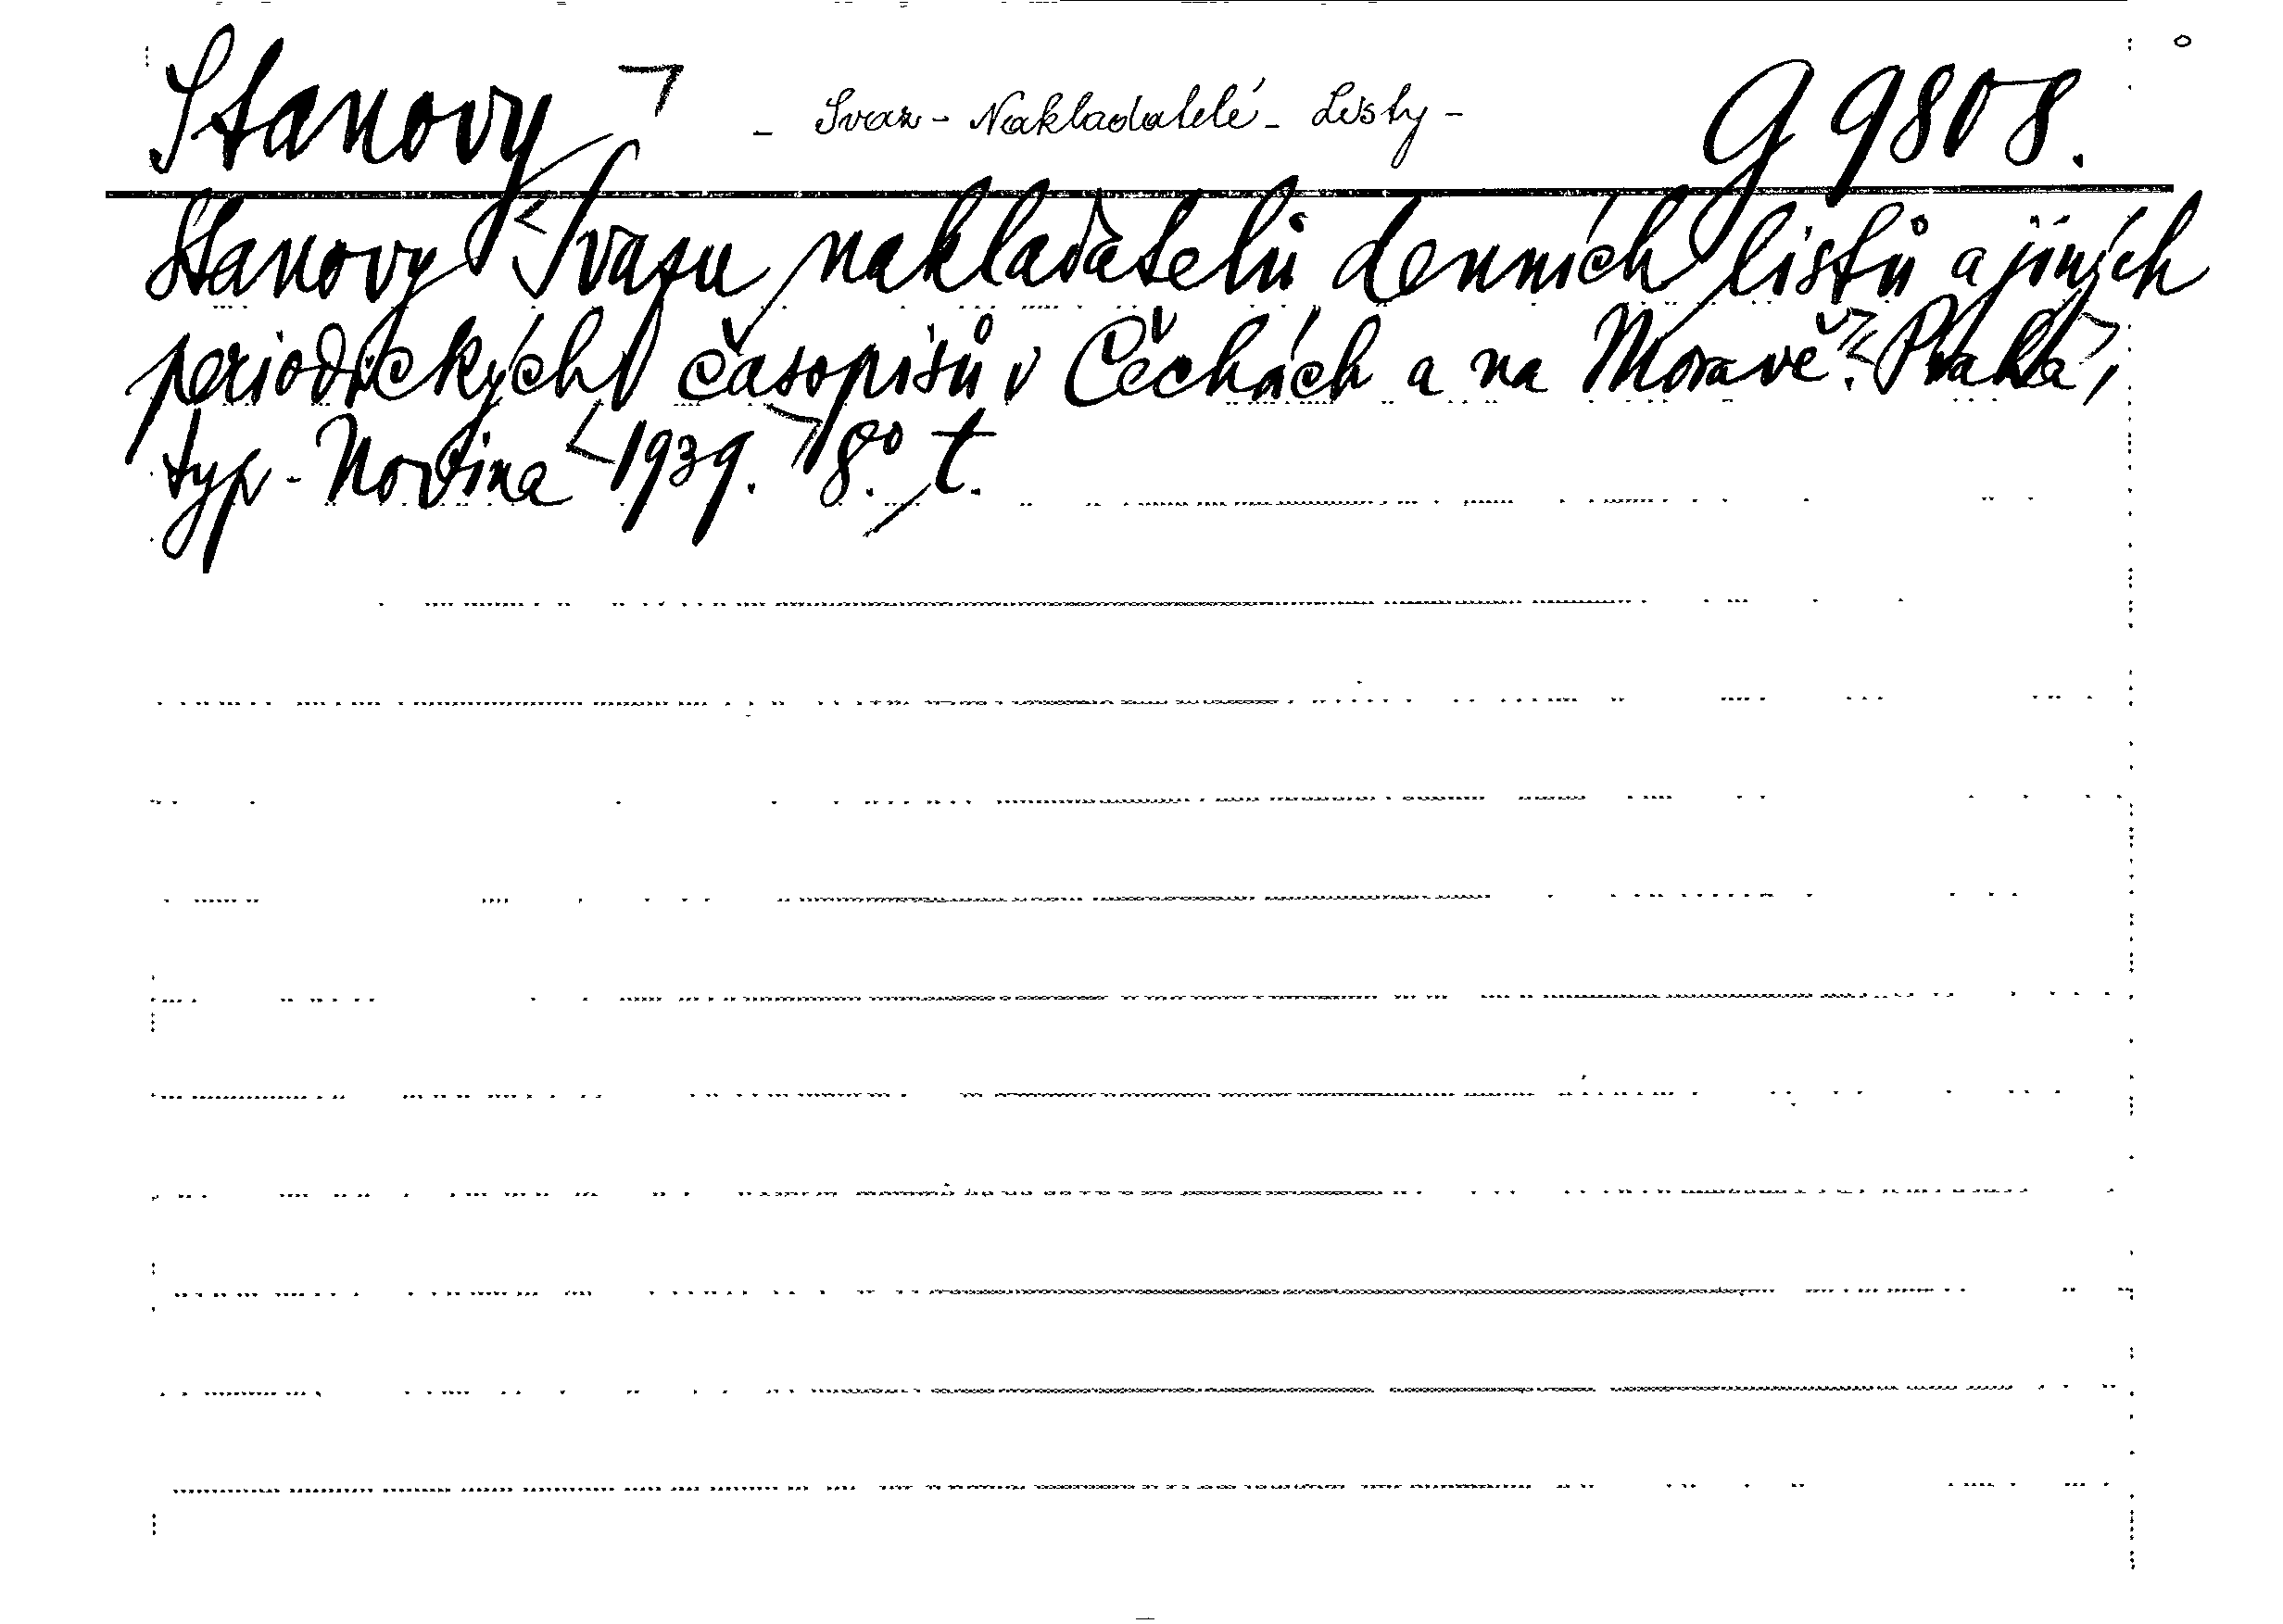 Stanovy - Svaz - Nakladatelé - Listy - G 9808.
Stanovy Svazu nakladatelů denních listů a jiných
periodických časopisů v Čechách a na Moravě. Praha,
typ. Novina 1939. 8°. t.